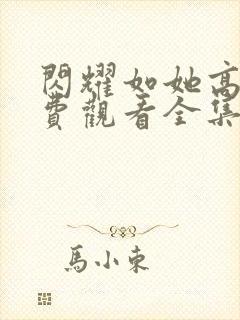 閃耀如她高
費觀看全集
馬小東